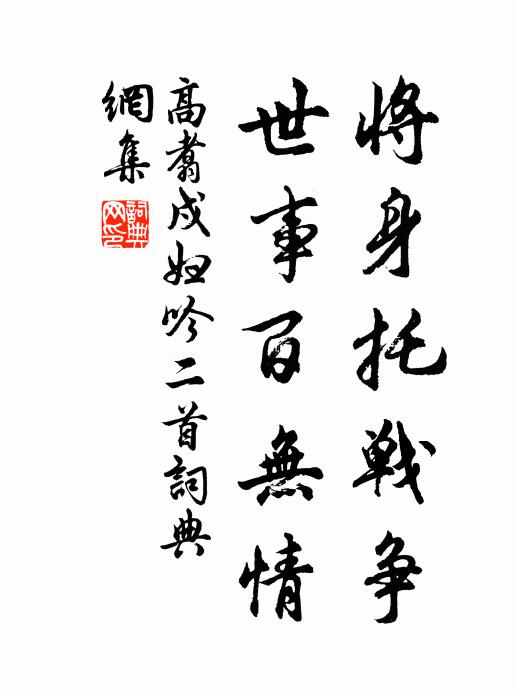 將身托戰争
世事百無情
高翥戍婦吟二首詞典
網集
詞典
网印